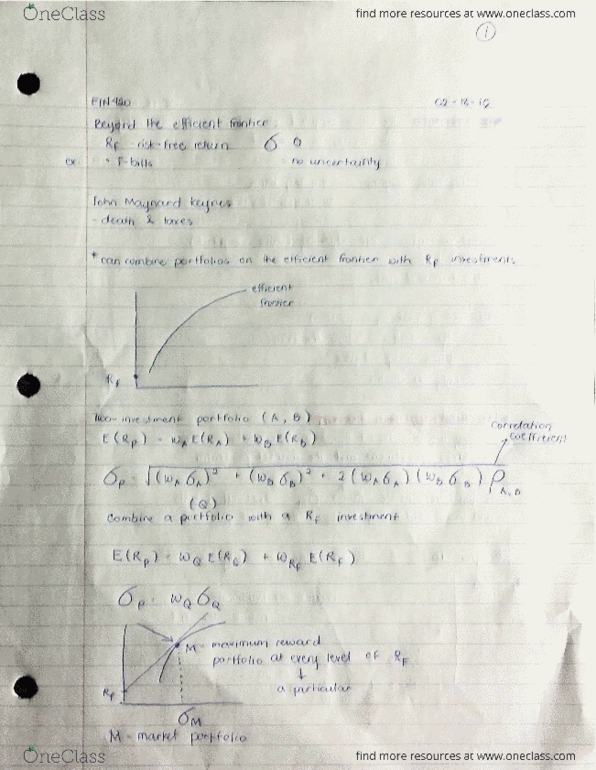 OneClass
find more resources at www.oneclass.com
1
FIN 420
Beyond the efficient frontier
RF - risk-free return σ = 0
ex • T-bills - no uncertainty
John Maynard Keynes
- death & taxes
* can combine portfolios on the efficient frontier with RF investments
efficient
frontier
RF
Two-investment portfolio (A, B)
E(Rp) = wAE(RA) + wBE(RB)
Correlation
coefficient
σp = √(wAσA)² + (wBσB)² + 2(wAσA)(wBσB)ρA,B
(Q)
Combine a portfolio with a RF investment
E(Rp) = wQE(RQ) + wRFE(RF)
σp = wQσQ
M = maximum reward
portfolio at every level of RF
↓
a particular
RF
σM
M = market portfolio
OneClass
find more resources at www.oneclass.com